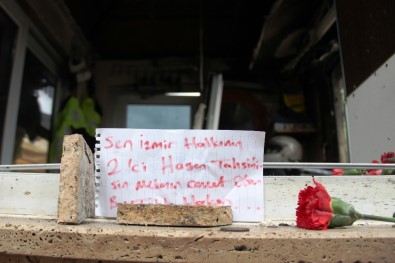 Sen İzmir Halkının
2'ci Hasan Tahsin'i
sin Mekanın cennet Olsun